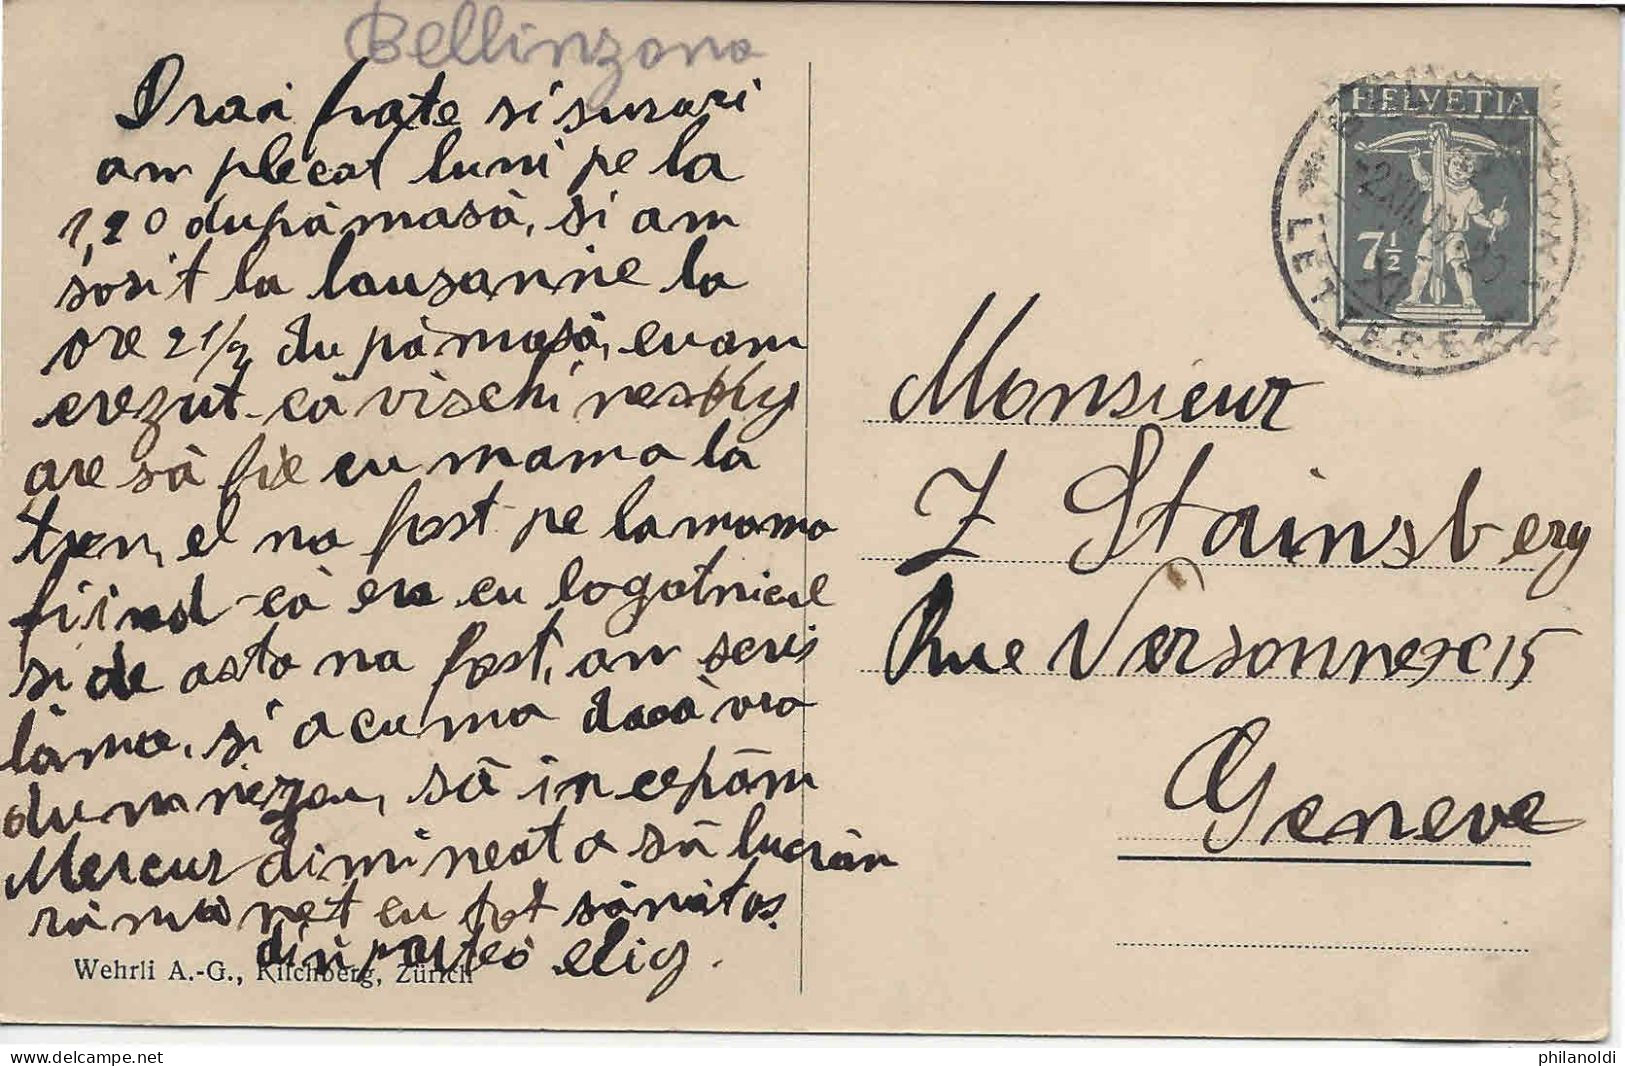 Bellinzona
Drai frate si surori
am plecat luni pe la
1,20 dupâmasâ, si am
sosit la lausanne la
ore 2 1/2 du pâmasâ, euam
crezut câ vischi
are sâ fie cu mama la
tren, el na fost pe la mama
fiind câ era cu logotnicul
si de asta na fost, am scris
lâma, si acuma dacâ vra
dumnezeu, sâ incepâm
Mercur dimineata sâ lucrâm
râmanet cu tot sânâtos.
din partea elig.
Wehrli A.-G., Kilchberg, Zürich
HELVETIA
7 1/2
LETTERE
Monsieur
J Stainsberg
Rue Versonnexe 15
Geneve
philanoldi